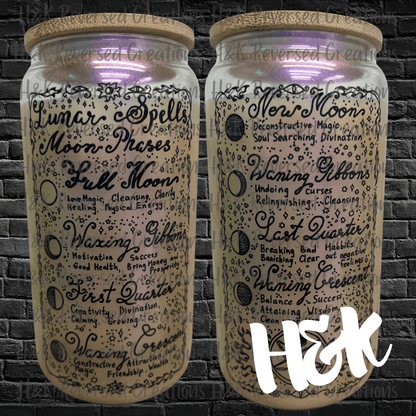 H&K Reversed Creations
Lunar Spells
Moon Phases
Full Moon
Love Magic, Cleansing, Clarity
Healing, Physical Energy
Waxing Gibbons
Motivation, Success
Good Health, Bring Money and
Prosperity
First Quarter
Creativity, Divination,
Calming, Growing
Waxing Crescent
Constructive, Attraction
Magic, Friendship, Wealth
H&K Reversed Creations
New Moon
Deconstructive Magic,
Soul Searching, Divination
Waning Gibbons
Undoing Curses
Relinquishing, Cleansing
Last Quarter
Breaking bad Habits
Banishing, Clear out negative
feelings
Waning Crescent
Balance, Success
Attaining Wisdom
H&K